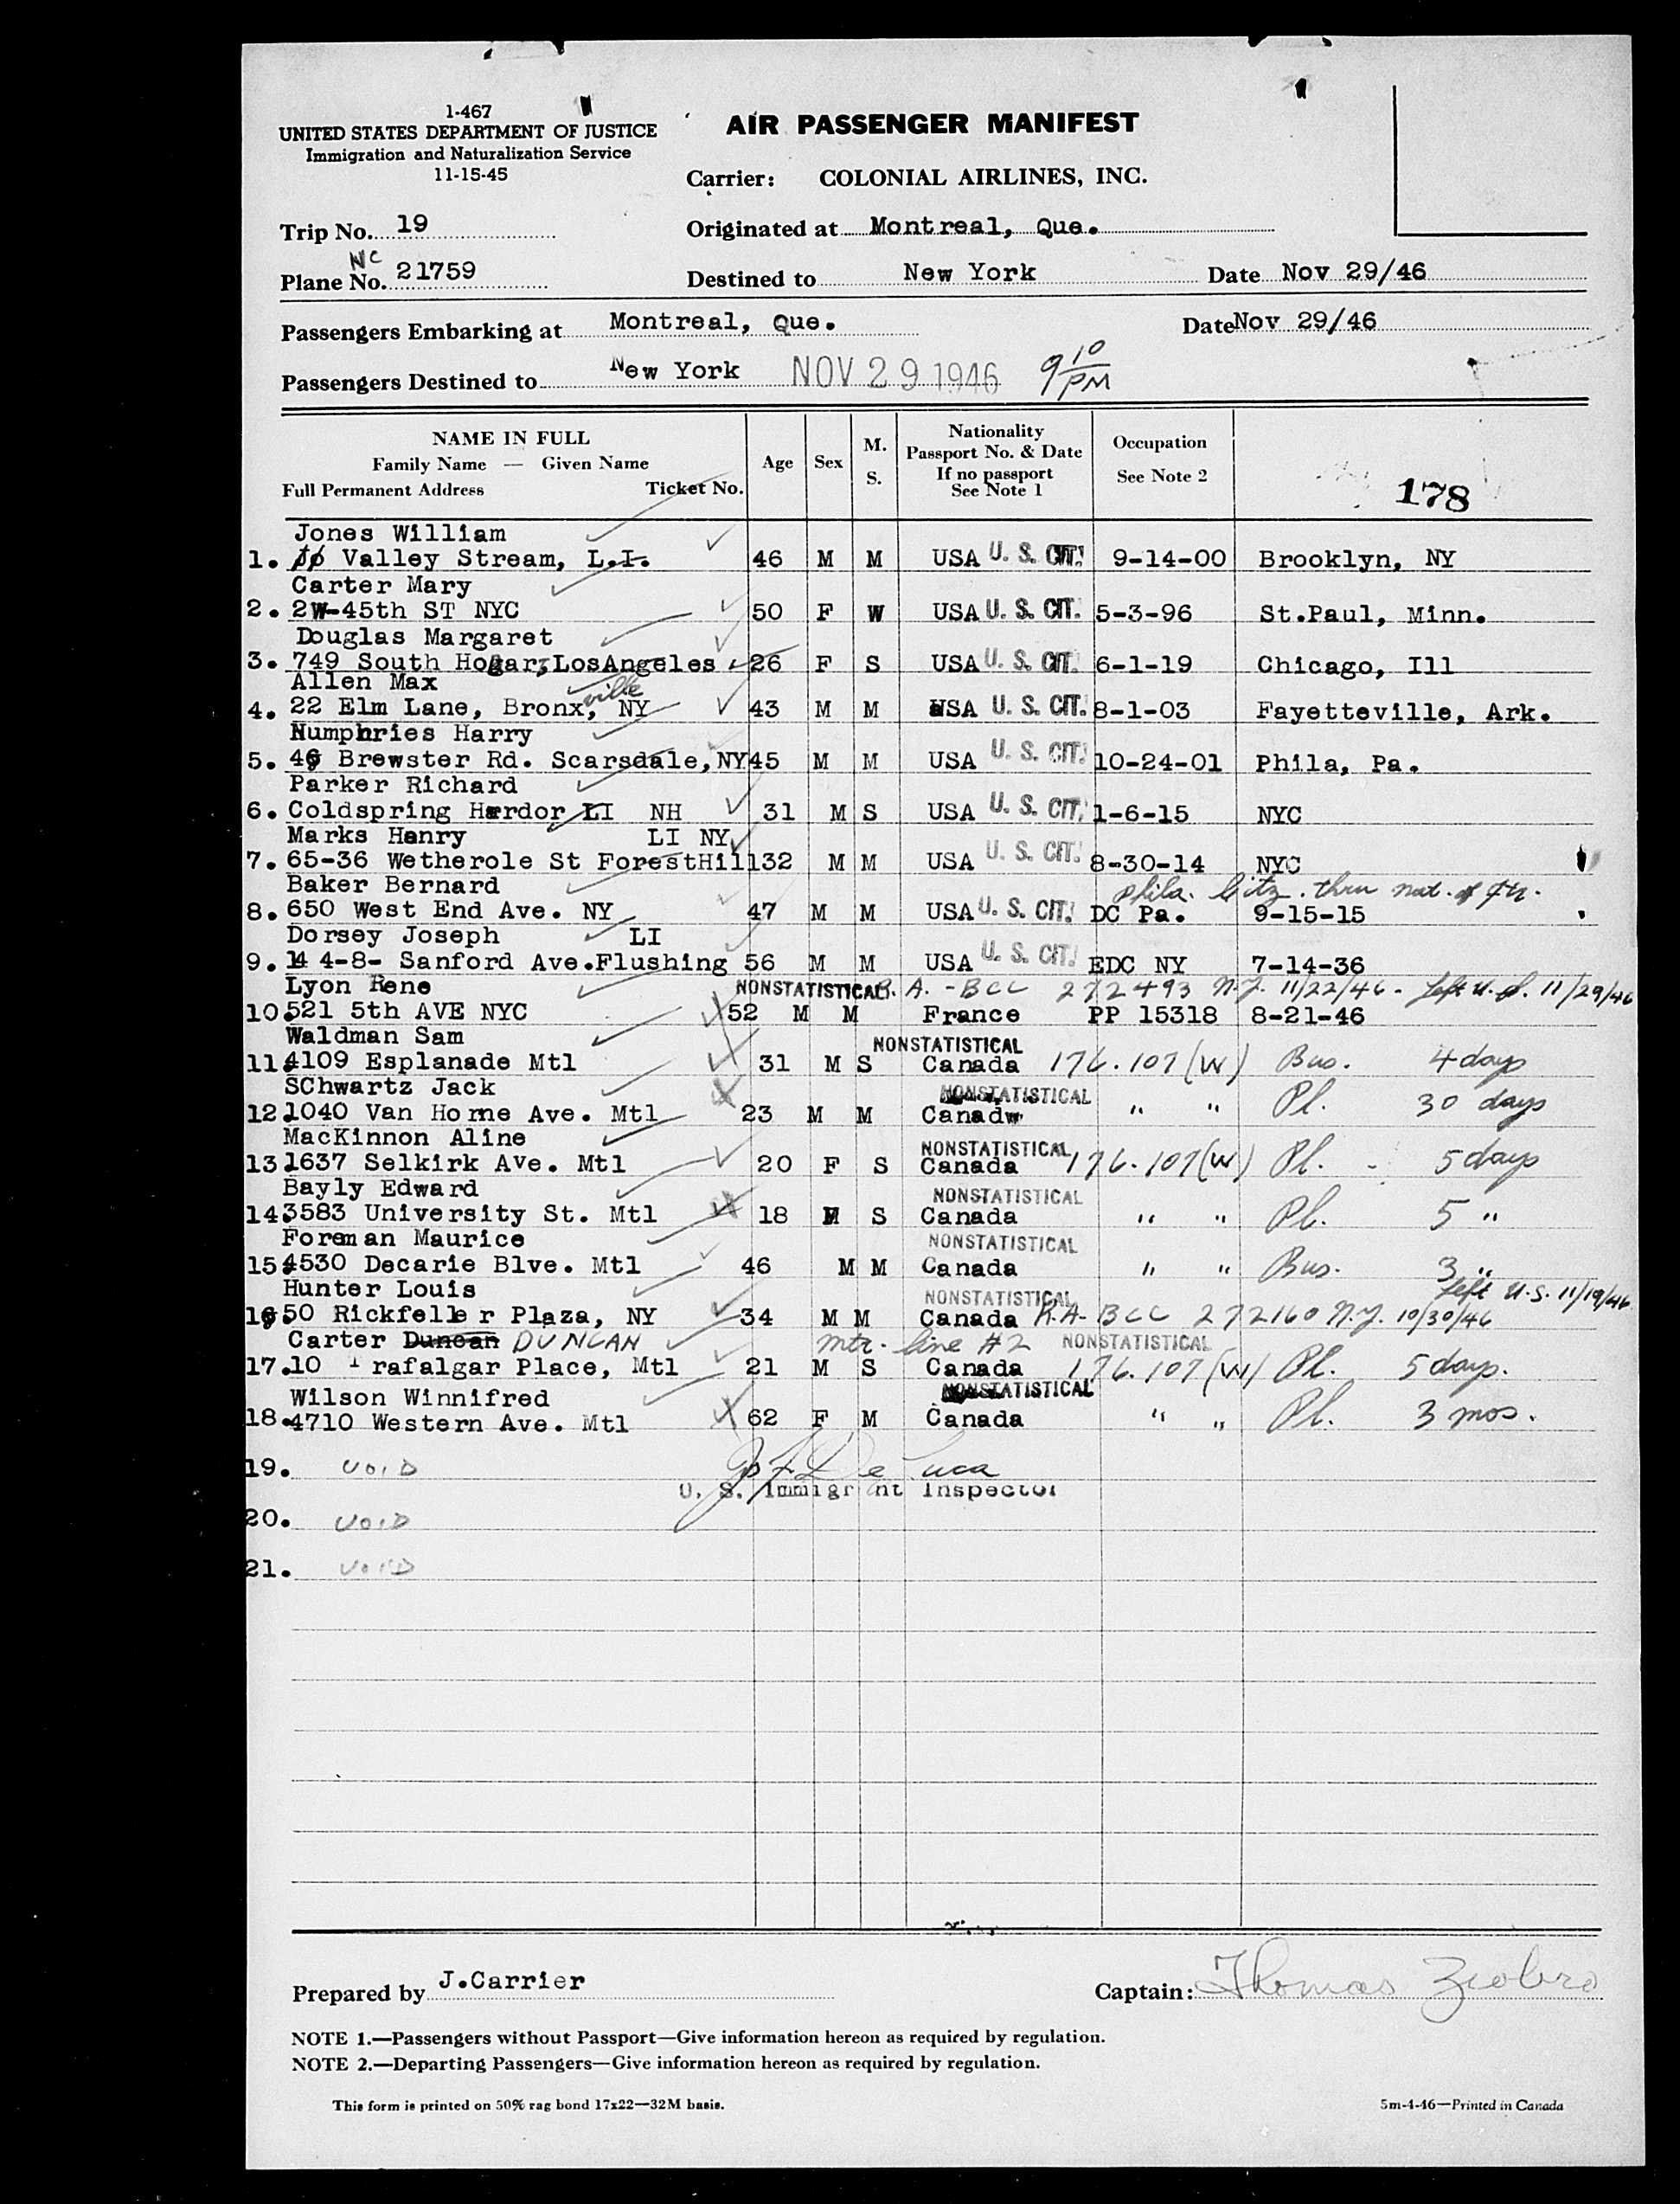 1-467
UNITED STATES DEPARTMENT OF JUSTICE
Immigration and Naturalization Service
11-15-45
AIR PASSENGER MANIFEST
Carrier: COLONIAL AIRLINES, INC.
Trip No. 19
Originated at Montreal, Que.
NC
Plane No. 21759
Destined to New York Date Nov 29/46
Passengers Embarking at Montreal, Que. Date Nov 29/46
Passengers Destined to New York NOV 29 1946 9 10 PM
NAME IN FULL
Family Name — Given Name
Full Permanent Address Ticket No.
Age Sex M. S.
Nationality
Passport No. & Date
If no passport
See Note 1
Occupation
See Note 2
178
Jones William
1. Valley Stream, L.I. 46 M M USA U. S. CIT. 9-14-00 Brooklyn, NY
Carter Mary
2. 2W-45th ST NYC 50 F W USA U. S. CIT. 5-3-96 St.Paul, Minn.
Douglas Margaret
3. 749 South LosAngeles 26 F S USA U. S. CIT. 6-1-19 Chicago, Ill
Allen Max
ville
4. 22 Elm Lane, Bronx, NY 43 M M USA U. S. CIT. 8-1-03 Fayetteville, Ark.
Humphries Harry
5. Brewster Rd. Scarsdale,NY 45 M M USA U. S. CIT. 10-24-01 Phila, Pa.
Parker Richard
6. Coldspring Hardor LI NH 31 M S USA U. S. CIT. 1-6-15 NYC
Marks Henry LI NY
7. 65-36 Wetherole St ForestHill 32 M M USA U. S. CIT. 8-30-14 NYC
Baker Bernard Phila. Citz. thru nat. of
8. 650 West End Ave. NY 47 M M USA U. S. CIT. DC Pa. 9-15-15
Dorsey Joseph LI
9. 14 4-8- Sanford Ave.Flushing 56 M M USA U. S. CIT. EDC NY 7-14-36
Lyon Rene NONSTATISTICAL R. A. - BCC 272493 N.Y. 11/22/46 - Left U.S. 11/29/46
10. 521 5th AVE NYC 52 M M France PP 15318 8-21-46
Waldman Sam NONSTATISTICAL
11. 4109 Esplanade Mtl 31 M S Canada 176.107(W) Bus. 4 days
SChwartz Jack NONSTATISTICAL
12. 1040 Van Horne Ave. Mtl 23 M M Canada " " Pl. 30 days
MacKinnon Aline NONSTATISTICAL
13. 1637 Selkirk Ave. Mtl 20 F S Canada 176.107(W) Pl. 5 days
Bayly Edward NONSTATISTICAL
14. 3583 University St. Mtl 18 M S Canada " " Pl. 5 "
Foreman Maurice NONSTATISTICAL
15. 4530 Decarie Blve. Mtl 46 M M Canada " " Bus. 3 "
Hunter Louis NONSTATISTICAL Left U.S. 11/19/46
16. 50 Rickfeller Plaza, NY 34 M M Canada R.A- BCC 272160 N.Y. 10/30/46
Carter Duncan DUNCAN mtr. line #2 NONSTATISTICAL
17. 10 Trafalgar Place, Mtl 21 M S Canada 176.107(W) Pl. 5 days.
Wilson Winnifred NONSTATISTICAL
18. 4710 Western Ave. Mtl 62 F M Canada " " Pl. 3 mos.
19. VOID
U. S. Immigrant Inspector
20. VOID
21. VOID
Prepared by J.Carrier
Captain: Thomas Ziobro
NOTE 1.—Passengers without Passport—Give information hereon as required by regulation.
NOTE 2.—Departing Passengers—Give information hereon as required by regulation.
This form is printed on 50% rag bond 17x22—32M basis.
5m-4-46—Printed in Canada